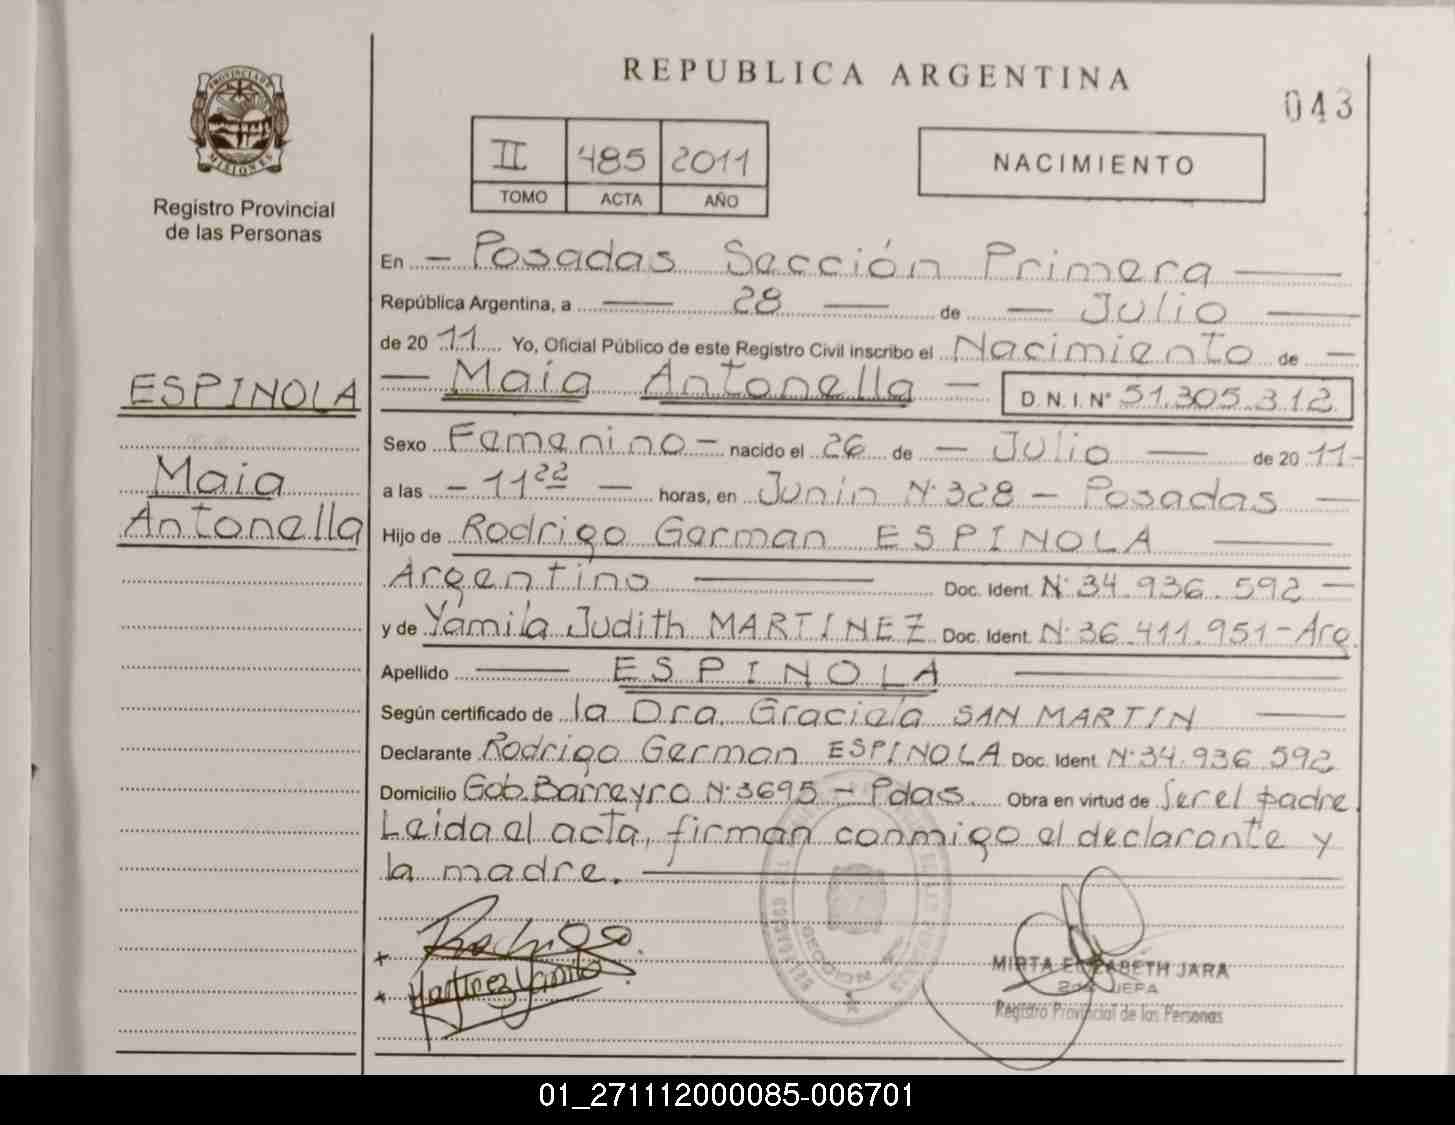 REPUBLICA ARGENTINA
043
PROVINCIA DE
MISIONES
Registro Provincial
de las Personas
II 485 2011
TOMO ACTA AÑO
NACIMIENTO
En - Posadas Sección Primera
República Argentina, a 28 de Julio
de 2011 Yo, Oficial Público de este Registro Civil inscribo el Nacimiento de -
- Maia Antonella - D.N.I.Nº 51.305.312
ESPINOLA
Maia
Antonella
Sexo Femenino - nacido el 26 de - Julio - de 2011-
a las - 11 22 - horas, en Junín Nº 328 - Posadas -
Hijo de Rodrigo German ESPINOLA
Argentino Doc. Ident. Nº 34.936.592 -
y de Yamila Judith MARTINEZ Doc. Ident. Nº 36.411.951 - Arg.
Apellido ESPINOLA
Según certificado de la Dra. Graciela SAN MARTIN
Declarante Rodrigo German ESPINOLA Doc. Ident. Nº 34.936.592
Domicilio Gob. Barreyro Nº 3695 - Pdas. Obra en virtud de Ser el padre.
Leida el acta, firman conmigo el declarante y
la madre.
Rodrigo
Martinez Yamila
MIRTA ELIZABETH JARA
JEFA
Registro Provincial de las Personas
01_271112000085-006701